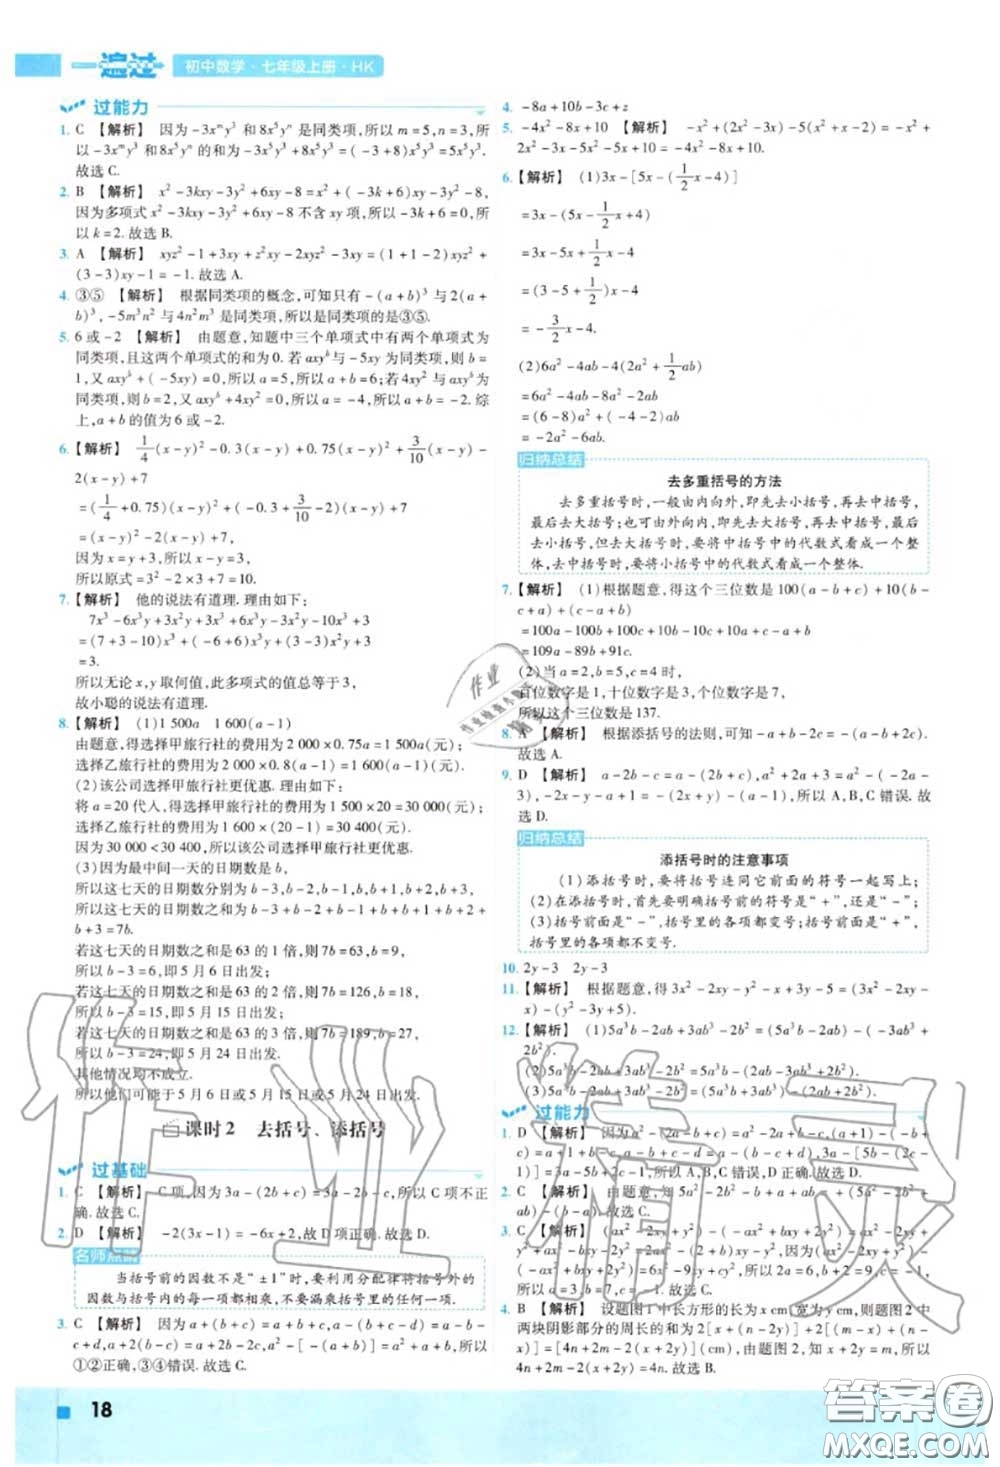 一遍过 初中数学·七年级上册·HK
过能力
1. C 【解析】 因为-3xᵐy³ 和 8x⁵yⁿ 是同类项,所以 m=5,n=3,所
以-3xᵐy³ 与 8x⁵yⁿ 的和为-3x⁵y³+8x⁵y³=(-3+8)x⁵y³=5x⁵y³.
故选 C.
2. B 【解析】 x²-3kxy-3y²+6xy-8=x²+(-3k+6)xy-3y²-8,
因为多项式 x²-3kxy-3y²+6xy-8 不含 xy 项,所以-3k+6=0,所
以 k=2. 故选 B.
3. A 【解析】 xyz²-1+3xy+z²xy-2xyz²-3xy=(1+1-2)xyz²+
(3-3)xy-1=-1. 故选 A.
4. ③⑤ 【解析】 根据同类项的概念,可知只有-(a+b)³ 与 2(a+
b)³,-5m³n² 与 4n²m³ 是同类项,所以是同类项的是③⑤.
5. 6 或-2 【解析】 由题意,知题中三个单项式中有两个单项式为
同类项,且这两个单项式的和为 0. 若 axyᵇ 与-5xy 为同类项,则 b=
1,又 axyᵇ+(-5xy)=0,所以 a=5,所以 a+b=6;若 4xy² 与 axyᵇ 为
同类项,则 b=2,又 axyᵇ+4xy²=0,所以 a=-4,所以 a+b=-2. 综
上,a+b 的值为 6 或-2.
6. 【解析】 1/4(x-y)²-0.3(x-y)+0.75(x-y)²+3/10(x-y)-
2(x-y)+7
=(1/4+0.75)(x-y)²+(-0.3+3/10-2)(x-y)+7
=(x-y)²-2(x-y)+7.
因为 x=y+3,所以 x-y=3,
所以原式=3²-2×3+7=10.
7. 【解析】 他的说法有道理. 理由如下:
7x³-6x³y+3x²y+3x³+6x³y-3x²y-10x³+3
=(7+3-10)x³+(-6+6)x³y+(3-3)x²y+3
=3.
所以无论 x,y 取何值,此多项式的值总等于 3,
故小聪的说法有道理.
8. 【解析】 (1)1 500a 1 600(a-1)
由题意,得选择甲旅行社的费用为 2 000×0.75a=1 500a(元);
选择乙旅行社的费用为 2 000×0.8(a-1)=1 600(a-1)(元).
(2)该公司选择甲旅行社更优惠. 理由如下:
将 a=20 代入,得选择甲旅行社的费用为 1 500×20=30 000(元);
选择乙旅行社的费用为 1 600×(20-1)=30 400(元).
因为 30 000<30 400,所以该公司选择甲旅行社更优惠.
(3)因为最中间一天的日期数是 b,
所以这七天的日期数分别为 b-3,b-2,b-1,b,b+1,b+2,b+3,
所以这七天的日期数之和为 b-3+b-2+b-1+b+b+1+b+2+
b+3=7b.
若这七天的日期数之和是 63 的 1 倍,则 7b=63,b=9,
所以 b-3=6,即 5 月 6 日出发;
若这七天的日期数之和是 63 的 2 倍,则 7b=126,b=18,
所以 b-3=15,即 5 月 15 日出发;
若这七天的日期数之和是 63 的 3 倍,则 7b=189,b=27,
所以 b-3=24,即 5 月 24 日出发;
其他情况均不成立.
所以他们可能于 5 月 6 日或 5 月 15 日或 5 月 24 日出发.
课时 2 去括号、添括号
过基础
1. C 【解析】 C 项,因为 3a-(2b+c)=3a-2b-c,所以 C 项不正
确. 故选 C.
2. D 【解析】 -2(3x-1)=-6x+2,故 D 项正确. 故选 D.
名师点睛
当括号前的因数不是“±1”时,要利用分配律将括号外的
因数与括号内的每一项都相乘,不要漏乘括号里的任何一项.
3. C 【解析】 因为 a+(b+c)=a+b+c,a-(b+c-d)=a-b-
c+d,a-(-b+c)=a+b-c,a-[-(a+b)]=a²+a+b,所以
①②正确,③④错误. 故选 C.
4. -8a+10b-3c+z
5. -4x²-8x+10 【解析】 -x²+(2x²-3x)-5(x²+x-2)=-x²+
2x²-3x-5x²-5x+10=-4x²-8x+10.
6. 【解析】 (1)3x-[5x-(1/2x-4)]
=3x-(5x-1/2x+4)
=3x-5x+1/2x-4
=(3-5+1/2)x-4
=-3/2x-4.
(2)6a²-4ab-4(2a²+1/2ab)
=6a²-4ab-8a²-2ab
=(6-8)a²+(-4-2)ab
=-2a²-6ab.
归纳总结
去多重括号的方法
去多重括号时,一般由内向外,即先去小括号,再去中括号,
最后去大括号;也可由外向内,即先去大括号,再去中括号,最后
去小括号,但去大括号时,要将中括号中的代数式看成一个整
体,去中括号时,要将小括号中的代数式看成一个整体.
7. 【解析】 (1)根据题意,得这个三位数是 100(a-b+c)+10(b-
c+a)+(c-b+a)
=100a-100b+100c+10b-10c+10a+c-b+a
=109a-89b+91c.
(2)当 a=2,b=5,c=4 时,
百位数字是 1,十位数字是 3,个位数字是 7,
所以这个三位数是 137.
8. A 【解析】 根据添括号的法则,可知-a+b-2c=-(a-b+2c).
故选 A.
9. D 【解析】 a-2b-c=a-(2b+c),a²+2a+3=a²-(-2a-
3),-2x-a-y+1=-(2x+y)-(a-1). 所以 A,B,C 错误. 故
选 D.
归纳总结
添括号时的注意事项
(1)添括号时,要将括号连同它前面的符号一起写上;
(2)在添括号时,首先要明确括号前的符号是“+”,还是“-”;
(3)括号前面是“-”,括号里的各项都变号;括号前面是“+”,
括号里的各项都不变号.
10. 2y-3 2y-3
11. 【解析】 根据题意,得 3x²-2xy-x+3y-5=(3x²-2xy-
x)-(y²-3y+5).
12. 【解析】 (1)5a³b-2ab+3ab³-2b²=+(5a³b-2ab+3ab³-
2b²).
(3)5a³b-2ab+3ab³-2b²=(5a³b+3ab³)-(2ab+2b²).
过能力
4. B 【解析】 设题图 1 中长方形的长为 x cm,宽为 y cm,则题图 2 中
两块阴影部分的周长的和为 2[x+(n-2y)]+2[(m-x)+(n-
x)]=[4n+2m-2(x+2y)](cm),由题图 2,知 x+2y=m,所以
4n+2m-2(x+2y)=4n. 故选 B.
18
作业精灵
答案圈
MXQE.COM